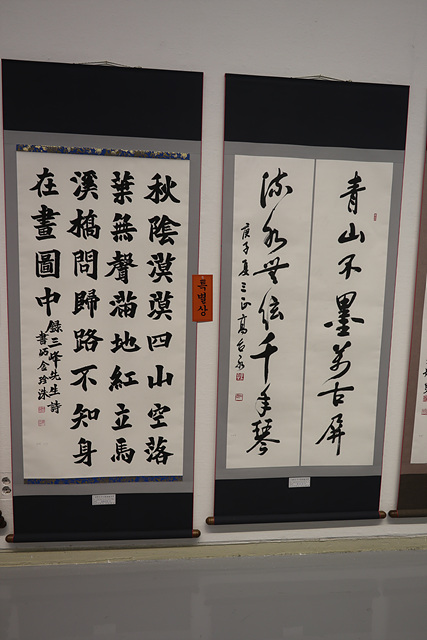 秋陰漠漠四山空落
葉無聲滿地紅立馬
溪橋問歸路不知身
在畫圖中
錄三峰先生詩
金珍洙
특별상
青山不墨萬古屏
流水無絃千年琴
庚子夏 三正